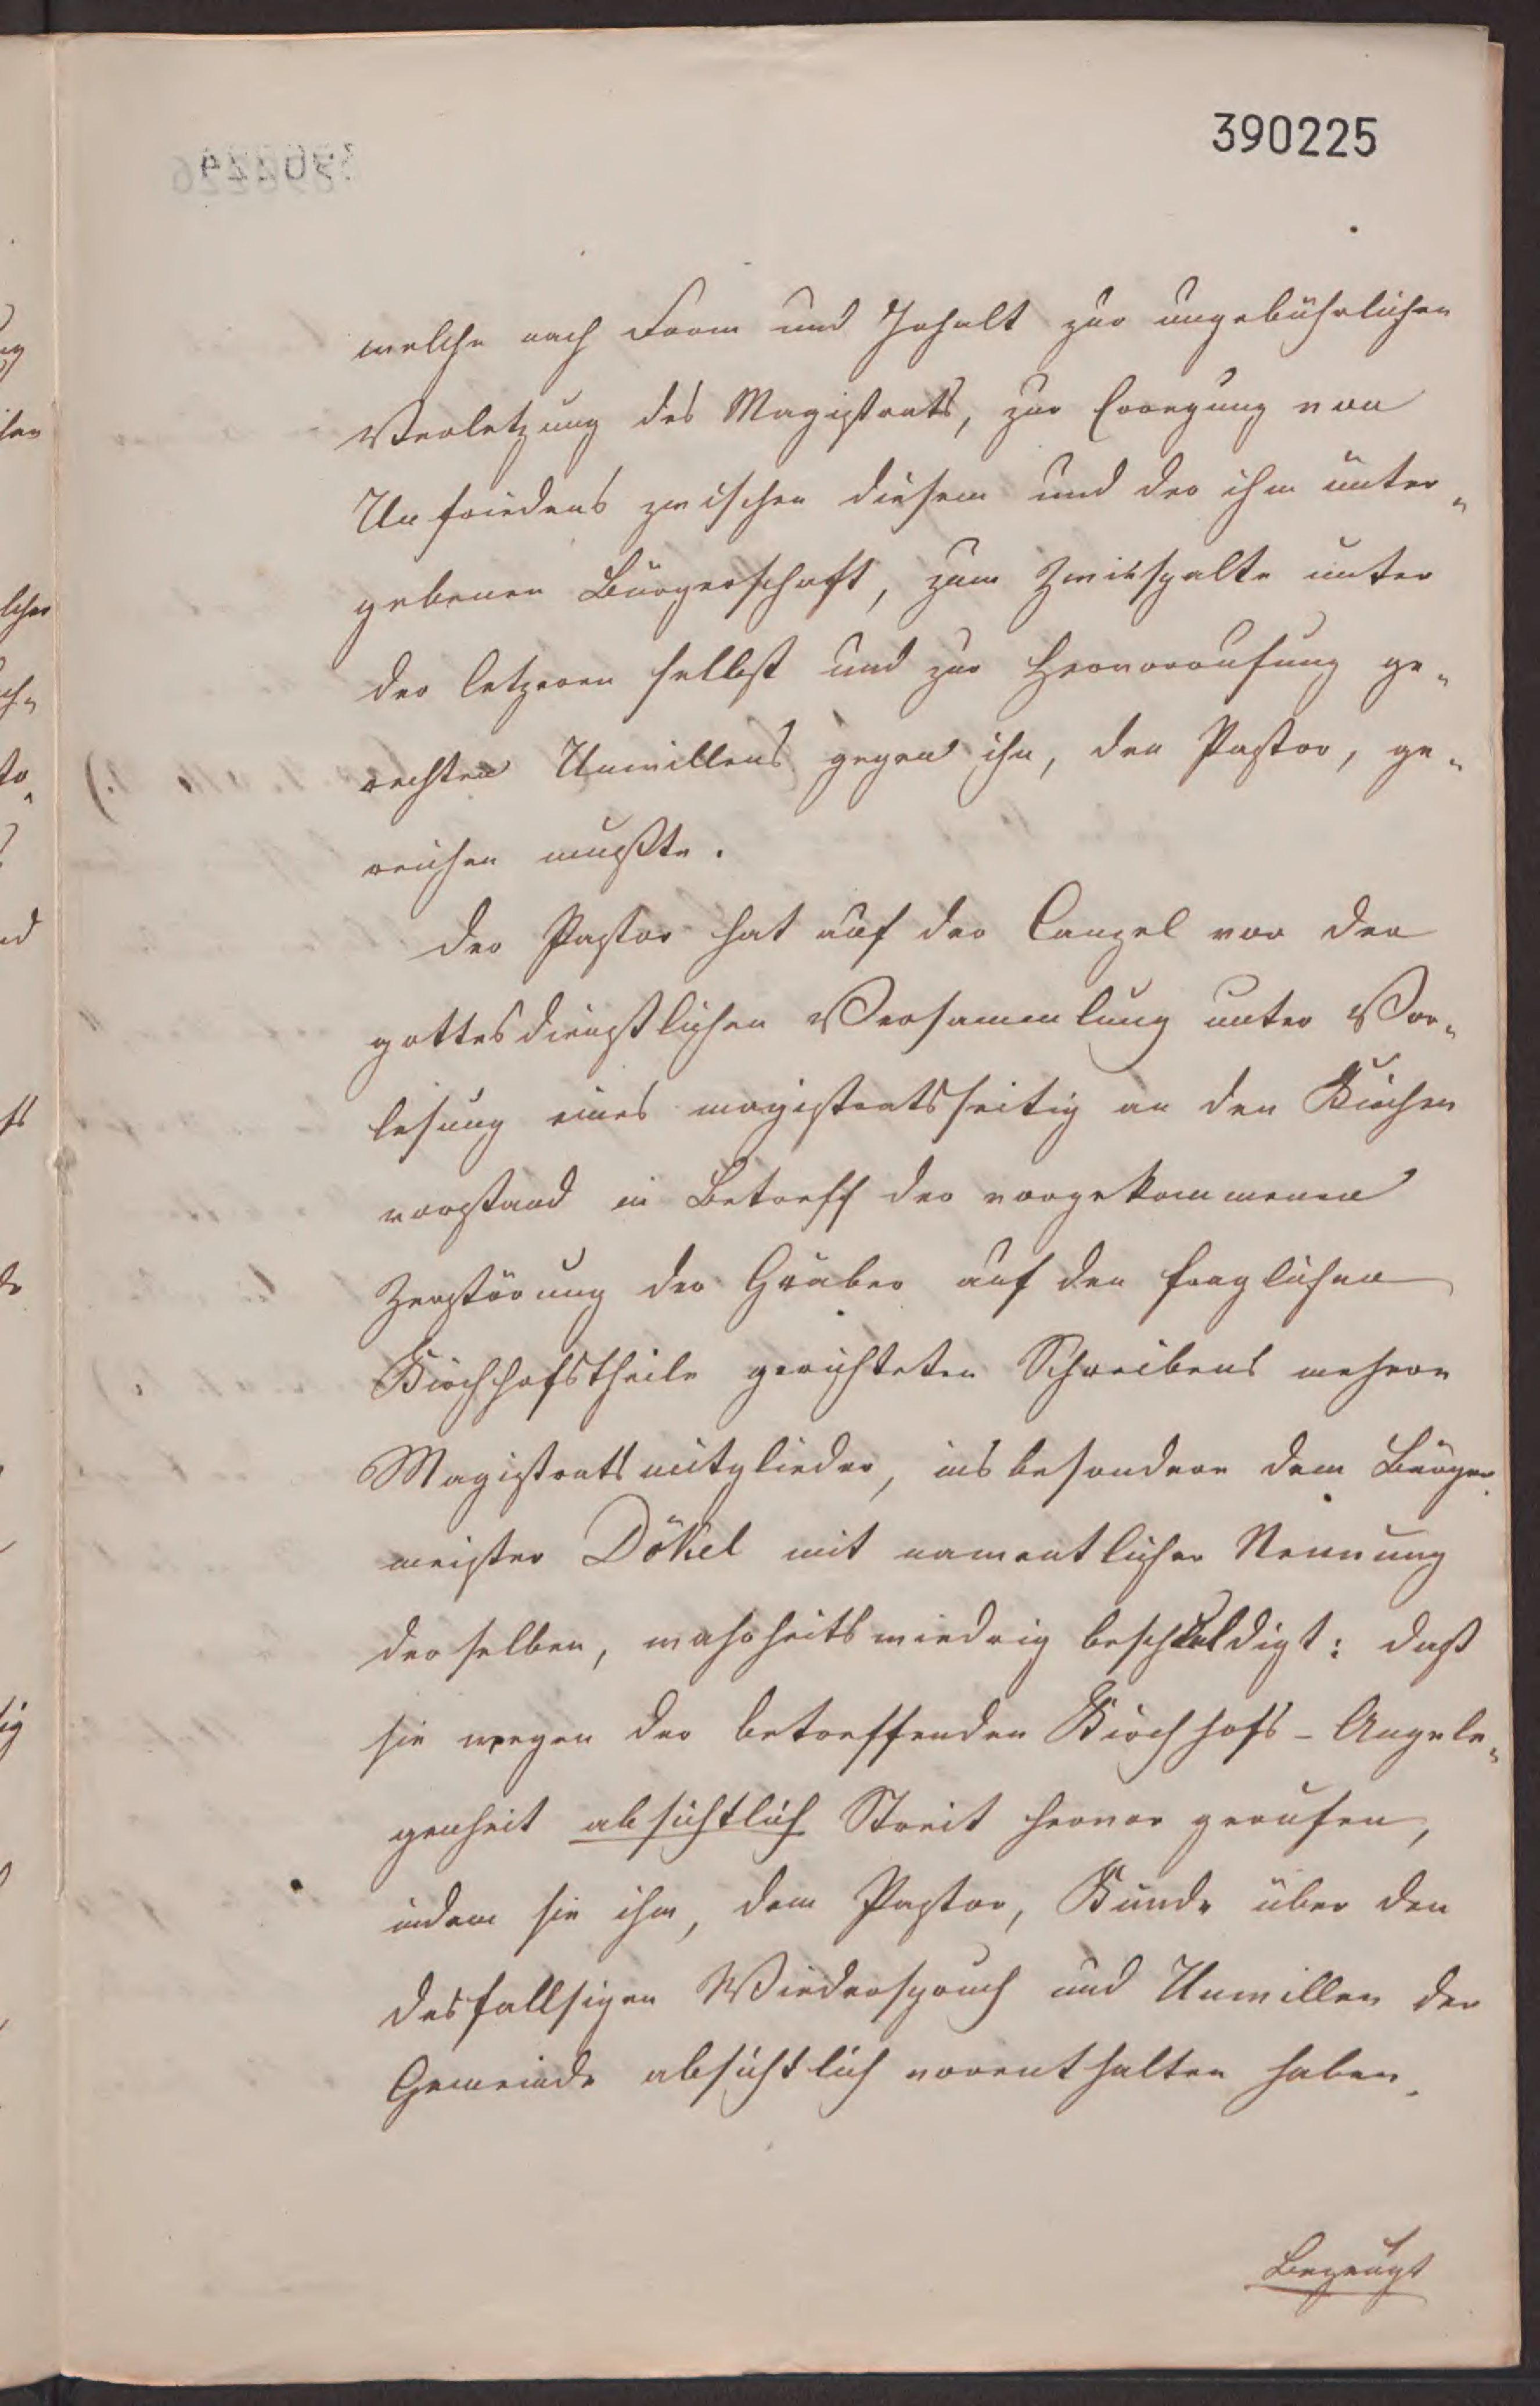 390225
welche nach Form und Inhalt zur ungebührlichen
Verletzung des Magistrats, zur Erregung von
Unfriedens zwischen diesem und der ihm unter-
gebenen Bürgerschaft, zum Zwiespalte unter
der letzeren selbst und zur Hervorrufung ge-
rechten Unwillens gegen ihn, den Pastor, ge-
reichen mußte.
Der Pastor hat auf der Canzel vor der
gottesdienstlichen Versammlung unter Vor-
lesung eines magistratsseitig an den Kirchen
vorstand in Betreff der vorgekommenen
Zerstörung der Gräber auf den fraglichen
Kirchhofstheile gerichteten Schreibens mehrere
Magistratsmitglieder, insbesondere dem Bürger-
meister Dökel mit namentlicher Nennung
derselben, wahrheitswiedrig beschuldigt: daß
sie wegen der betreffenden Kirchhofs-Angele-
genheit absichtlich Streit hervor gerufen,
indem sie ihm, dem Pastor, Kunde über den
desfallsigen Wiederspruch und Unwillen der
Gemeinde absichtlich vorenthalten haben.
Bezeugt